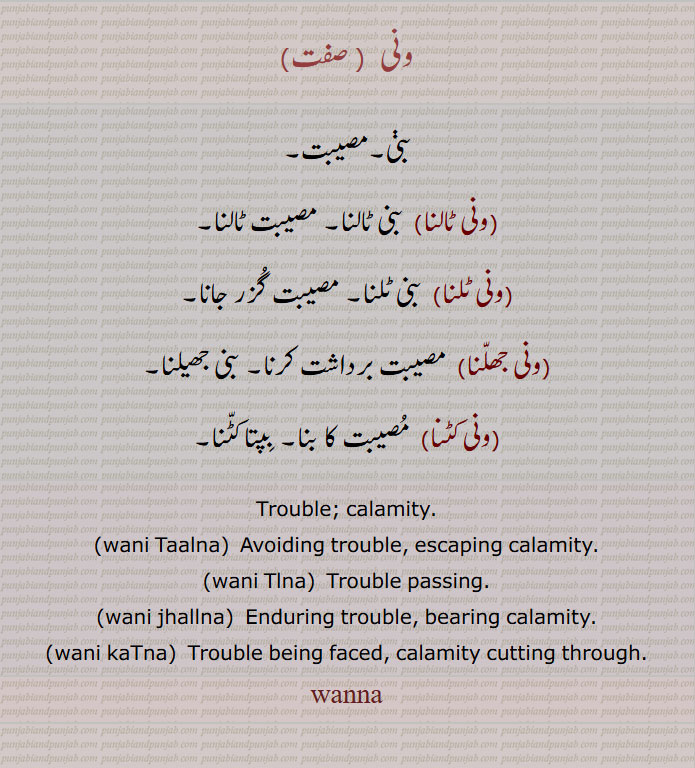 ونی ( صفت)
بنی۔مصیبت۔
(ونی ٹالنا) بنی ٹالنا۔ مصیبت ٹالنا۔
(ونی ٹلنا) بنی ٹلنا۔ مصیبت گُزر جانا۔
(ونی جھلّنا) مصیبت برداشت کرنا۔ بنی جھیلنا۔
(ونی کَٹنا) مُصیبت کا بنا۔ بِپتا کَٹّنا۔
Trouble; calamity.
(wani Taalna) Avoiding trouble, escaping calamity.
(wani Tlna) Trouble passing.
(wani jhallna) Enduring trouble, bearing calamity.
(wani kaTna) Trouble being faced, calamity cutting through.
wanna